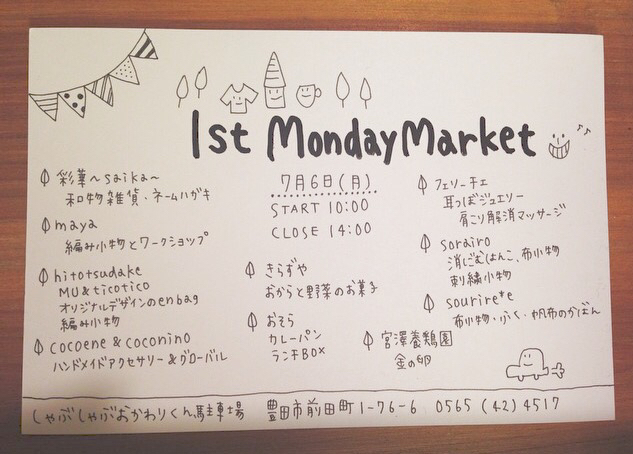 1st Monday Market
7月6日(月)
START 10:00
CLOSE 14:00
彩華～saika～
和物雑貨・ネームハガキ
maya
編み小物とワークショップ
hitotsudake
MU & ticotico
オリジナルデザインのenbag
編み小物
cocoene & coconino
ハンドメイドアクセサリー&グローバル
きらずや
おからと野菜のお菓子
おそら
カレーパン
ランチBOX
フェリーチェ
耳つぼジュエリー
肩こり解消マッサージ
sorairo
消しごむはんこ、布小物
刺繍小物
sourire*e
布小物・ふく・帆布のかばん
宮澤養鶏園
金の卵
しゃぶしゃぶおかわりくん駐車場 豊田市前田町1-76-6 0565(42)4517